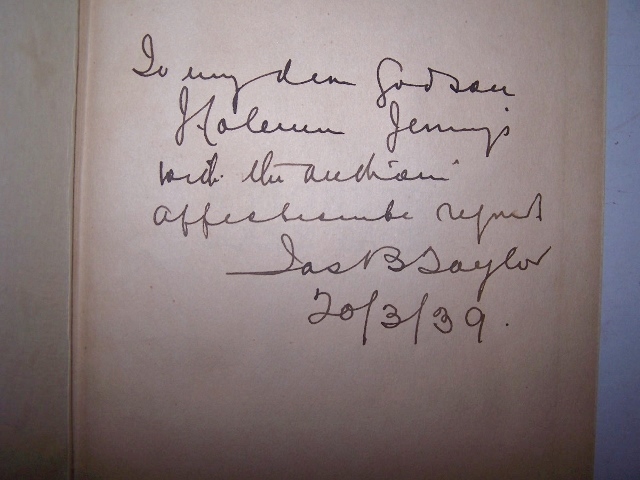 To my dear Godson
Jennings
with the author's
affectionate regards
Jas B Taylor
20/3/39.